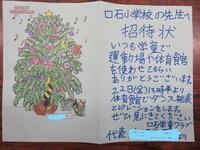 口石小学校の先生へ
招待状
いつも学童で
運動場や体育館
を使わせてもらい
ありがとうございます。
22日(金)15時半より
体育館でダンス発表
とレクレーションをします。
ぜひ見にきてください
口石学童クラブ
代表